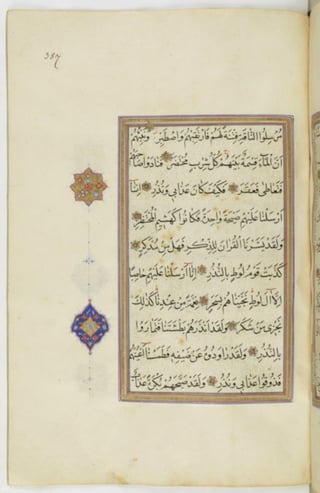 387
مُرْسِلُوا النَّاقَةِ فِتْنَةً لَهُمْ فَارْتَقِبْهُمْ وَاصْطَبِرْ وَنَبِّئْهُمْ
أَنَّ الْمَاءَ قِسْمَةٌ بَيْنَهُمْ كُلُّ شِرْبٍ مُحْتَضَرٌ فَنَادَوْا صَاحِبَهُمْ
فَتَعَاطَى فَعَقَرَ فَكَيْفَ كَانَ عَذَابِي وَنُذُرِ إِنَّا
أَرْسَلْنَا عَلَيْهِمْ صَيْحَةً وَاحِدَةً فَكَانُوا كَهَشِيمِ الْمُحْتَظِرِ
وَلَقَدْ يَسَّرْنَا الْقُرْآنَ لِلذِّكْرِ فَهَلْ مِنْ مُدَّكِرٍ
كَذَّبَتْ قَوْمُ لُوطٍ بِالنُّذُرِ إِنَّا أَرْسَلْنَا عَلَيْهِمْ حَاصِبًا
إِلَّا آلَ لُوطٍ نَجَّيْنَاهُمْ بِسَحَرٍ نِعْمَةً مِنْ عِنْدِنَا كَذَلِكَ
نَجْزِي مَنْ شَكَرَ وَلَقَدْ أَنْذَرَهُمْ بَطْشَتَنَا فَتَمَارَوْا
بِالنُّذُرِ وَلَقَدْ رَاوَدُوهُ عَنْ ضَيْفِهِ فَطَمَسْنَا أَعْيُنَهُمْ
فَذُوقُوا عَذَابِي وَنُذُرِ وَلَقَدْ صَبَّحَهُمْ بُكْرَةً عَذَابٌ